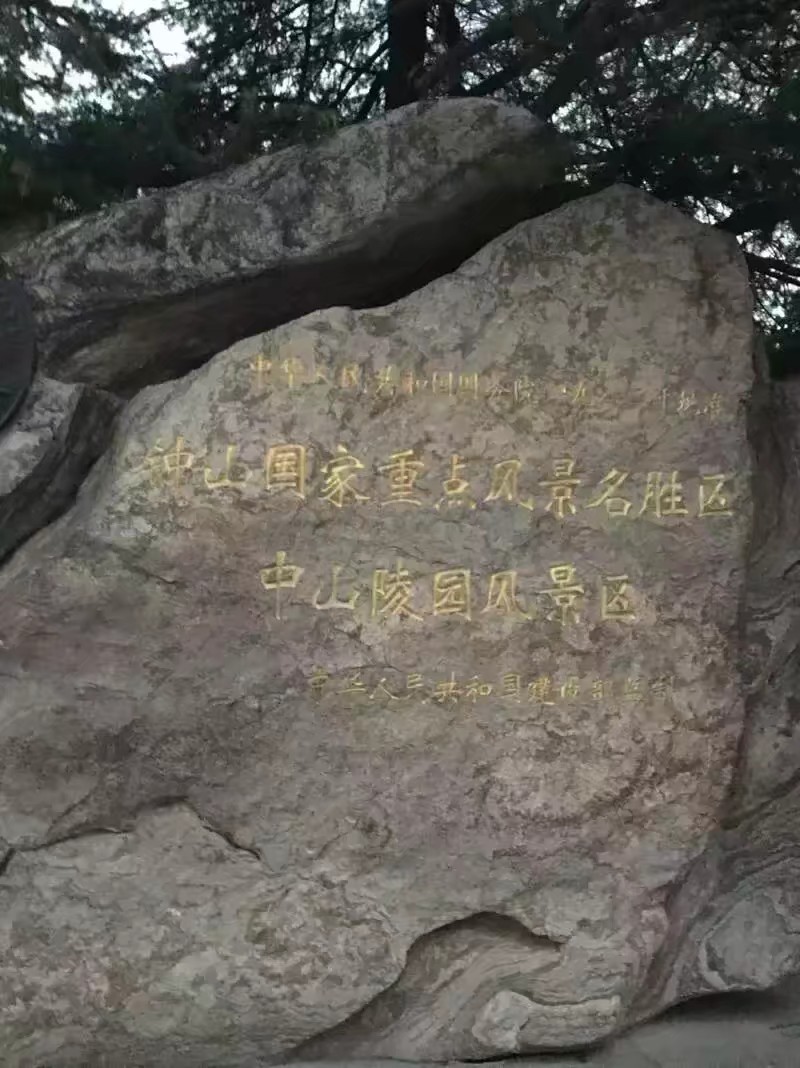 中华人民共和国国务院一九 年批准
钟山国家重点风景名胜区
中山陵园风景区
中华人民共和国建设部监制